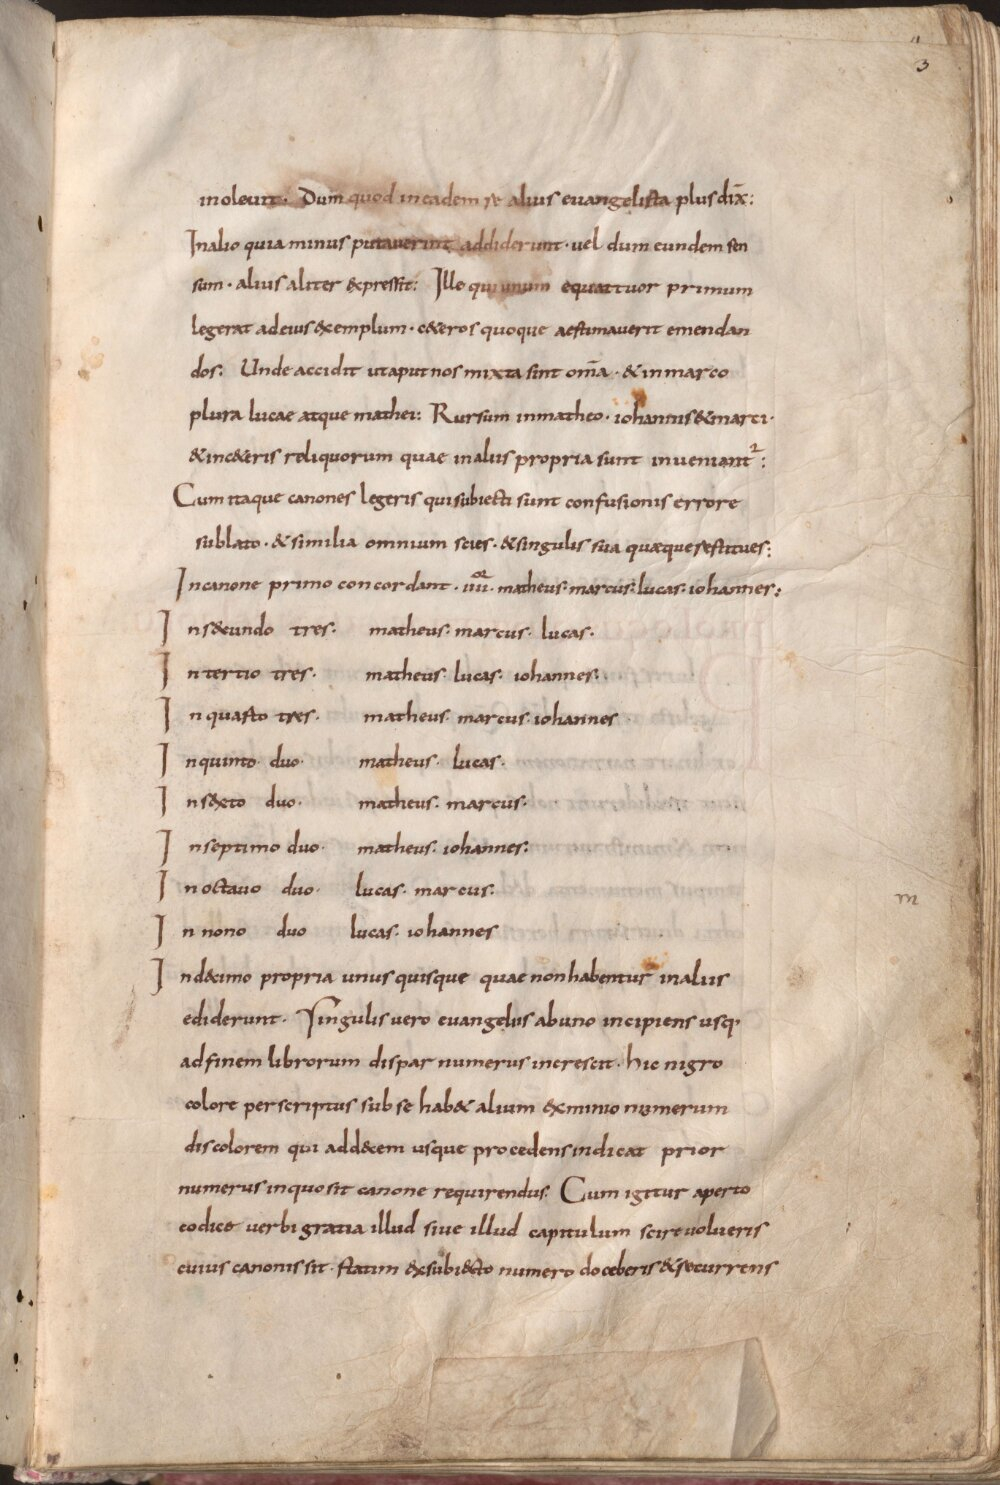 3
inoleuit. Dum quod in eadem re alius euangelista plus dix̄:
In alio quia minus putauerint addiderunt. uel dum eundem sen
sum. alius aliter expressit: Ille qui unum equattuor primum
legerat ad eius exemplum. c&eros quoque aestimauerit emendan
dos: Unde accidit ut aput nos mixta sint om̄a. & in marco
plura lucae atque mathei: Rursum in matheo. iohannis & marci.
& in c&eris reliquorum quae in aliis propria sunt inueniant²:
Cum itaque canones legeris qui subiecti sunt confusionis errore
sublato. & similia omnium scies. & singulis sua quaeque restitues:
In canone primo concordant. iiii^or. matheus. marcus. lucas. iohannes:
In s&cundo tres. matheus. marcus. lucas.
In tertio tres. matheus. lucas. iohannes.
In quarto tres. matheus. marcus. iohannes
In quinto. duo. matheus. lucas.
In s&xto duo. matheus. marcus.
In septimo duo. matheus. iohannes:
In octauo duo. lucas. marcus.
In nono duo lucas. iohannes
In d&cimo propria unus quisque quae non habentur in aliis
ediderunt. Singulis uero euangeliis ab uno incipiens usq;
ad finem librorum dispar numerus increscit. hic nigro
colore perscriptus sub se hab& alium ex minio numerum
discolorem qui ad d&cem usque procedens indicat prior
numerus in quo sit canone requirendus. Cum igitur aperto
codice uerbi gratia illud siue illud capitulum scire uolueris
cuius canonis sit. statim ex subi&cto numero doceberis & recurrens
m